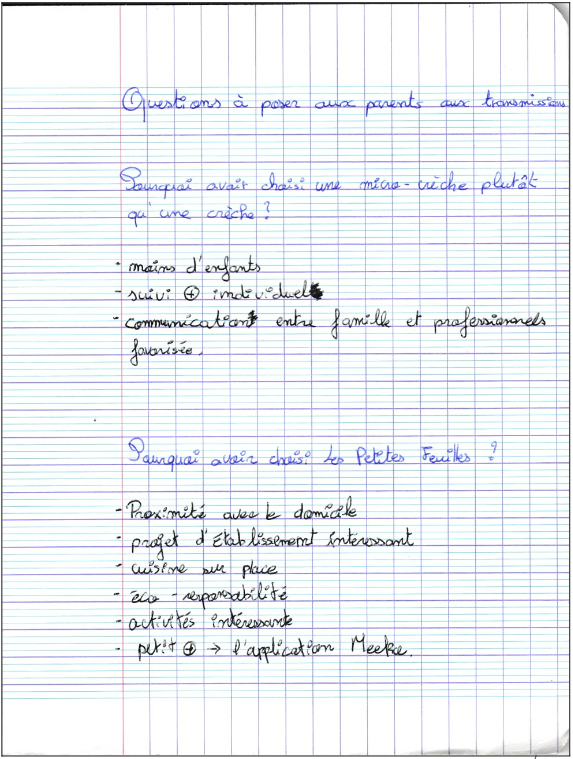 Questions à poser aux parents aux transmissions
Pourquoi avoir choisi une micro-crèche plutôt
qu'une crèche ?
- moins d'enfants
- suivi ⊕ individuel
- communication entre famille et professionnels
favorisée.
Pourquoi avoir choisi Les Petites Feuilles ?
- Proximité avec le domicile
- projet d'établissement intéressant
- cuisine sur place
- éco-responsabilité
- activités intéressante
- petit ⊕ → l'application Meeko.